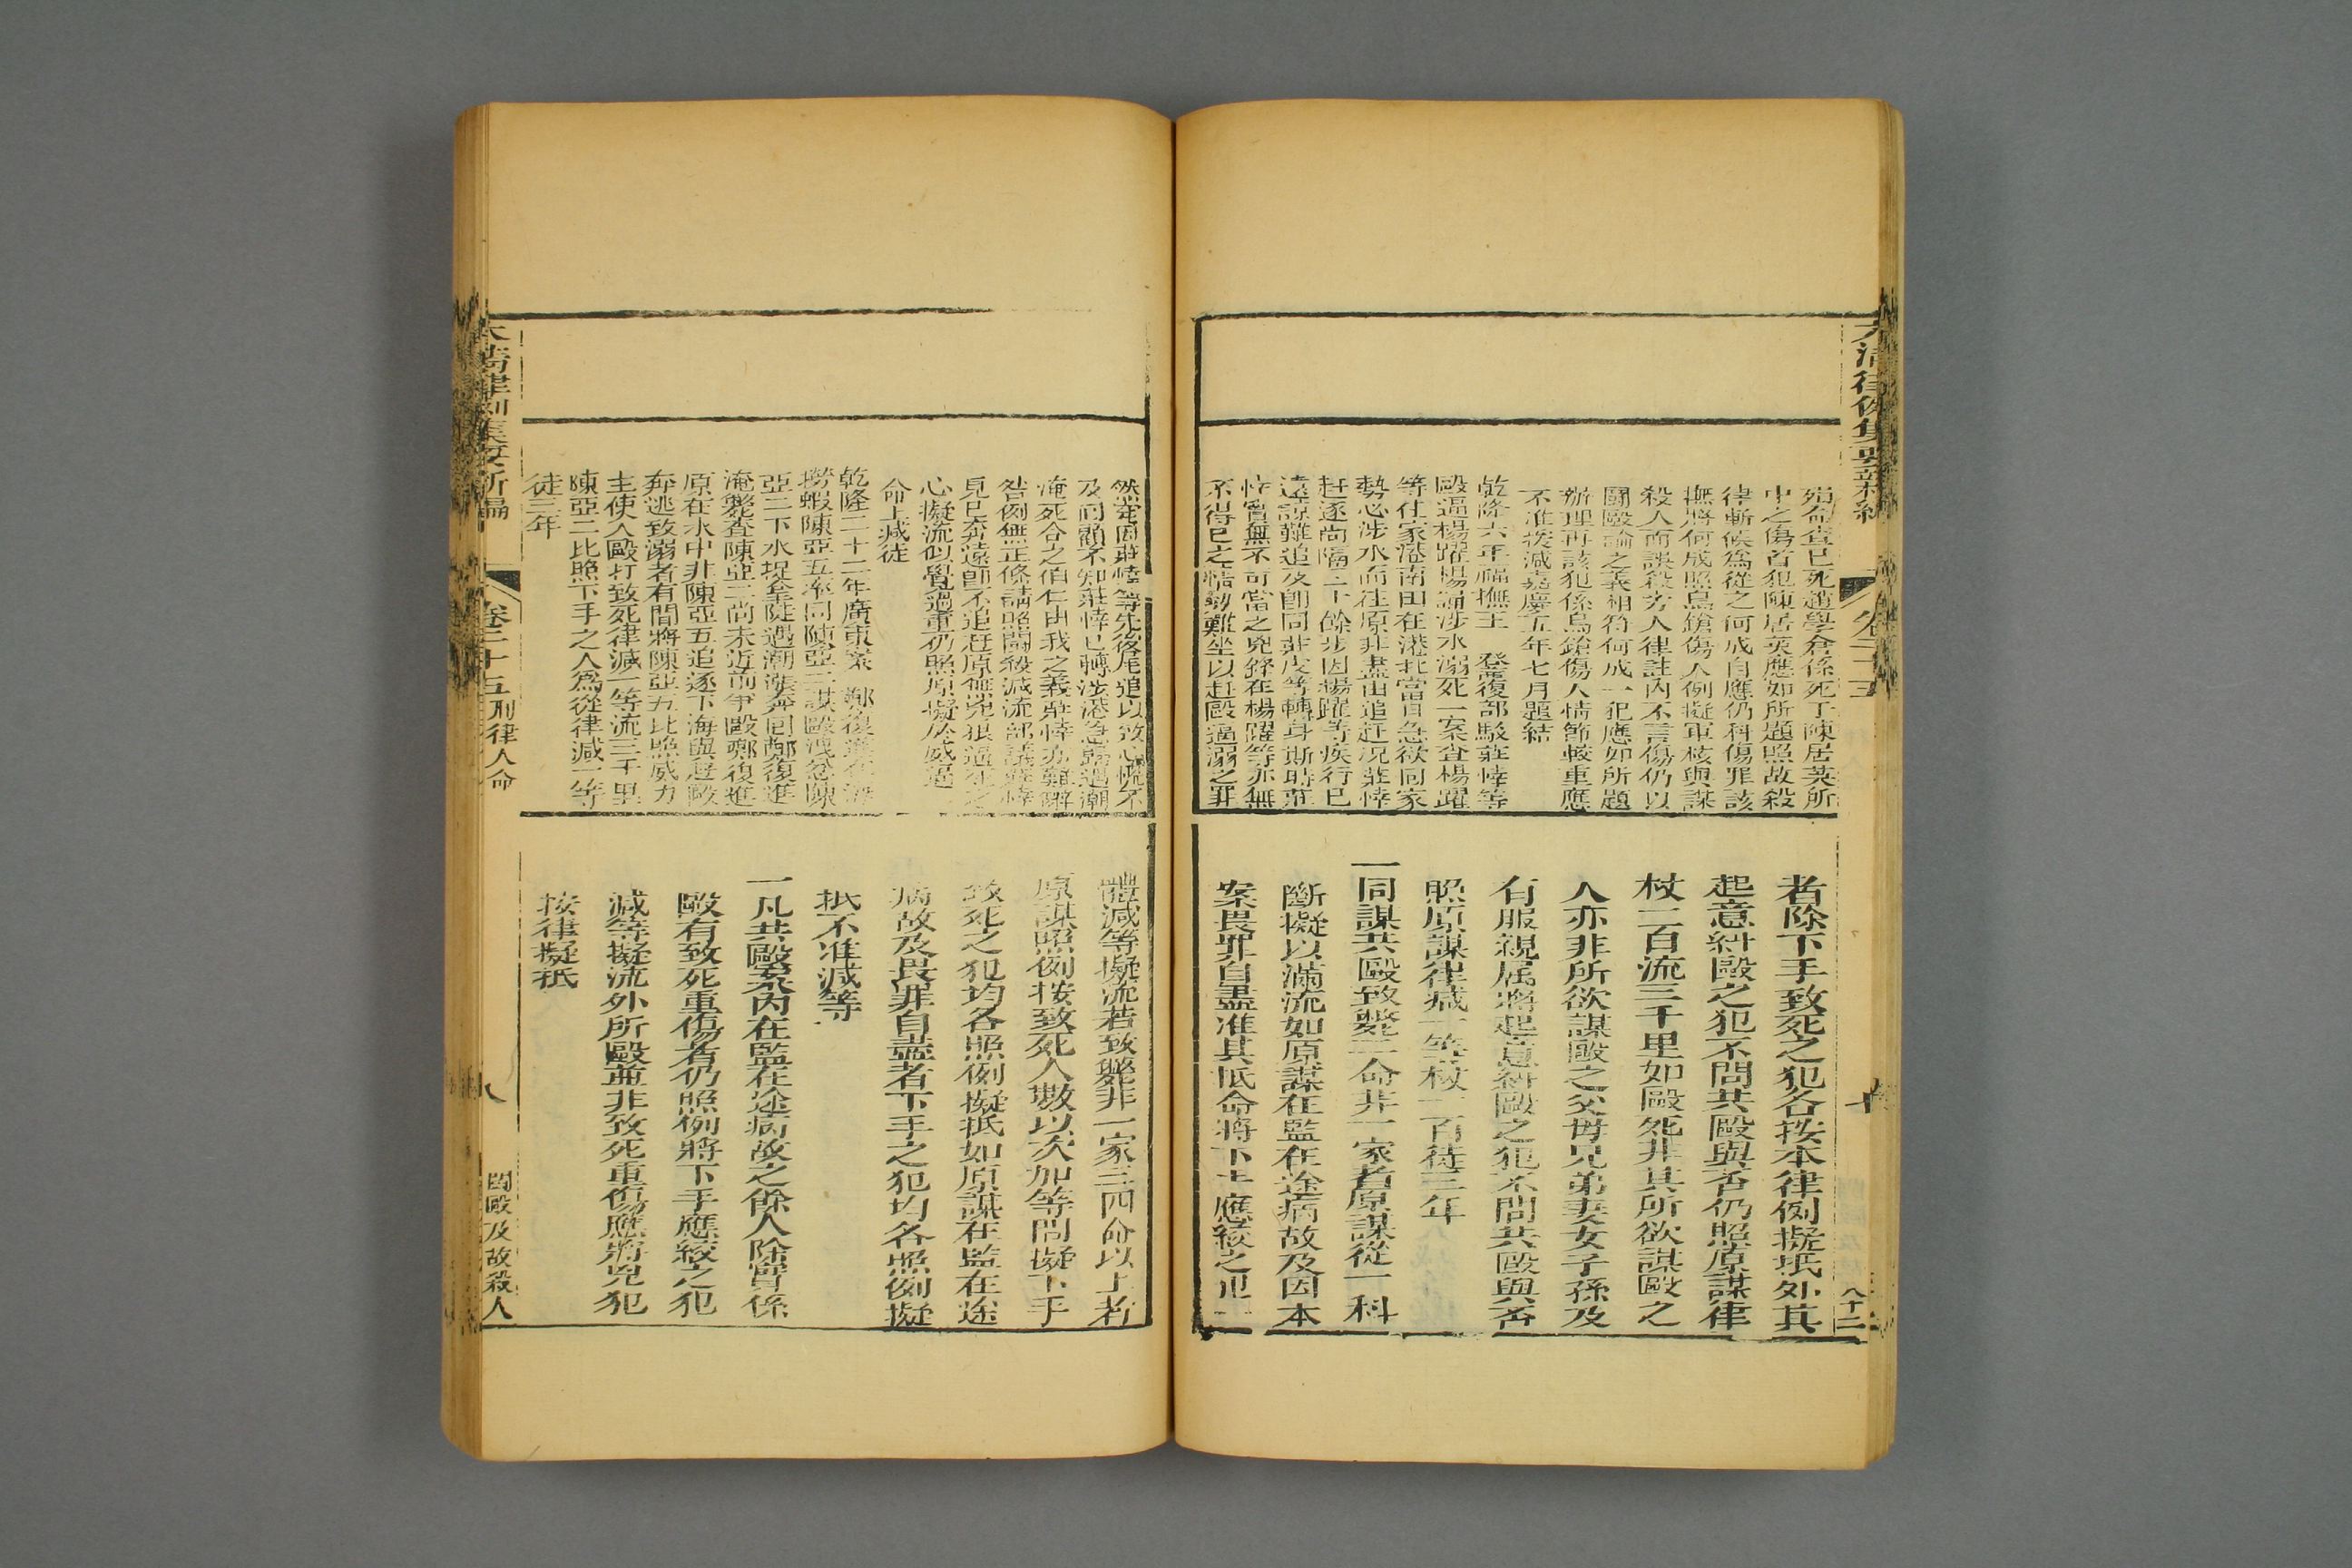 殞命查已死趙學倉係死于陳居英所
中之傷首犯陳居英應如所題照故殺
律斬候爲從之何成自應仍科傷罪該
撫將何成照鳥鎗傷人例擬軍核與謀
殺人而誤殺旁人律註內不言傷仍以
鬪毆論之義相符何成一犯應如所題
辦理再該犯係鳥鎗傷人情節較重應
不准援減嘉慶五年七月題結
乾隆六年福撫王 登覆部駁莊悻等
毆逼楊躍楊誦涉水溺死一案查楊躍
等住家港南田在港北當日急欲回家
勢必涉水而往原非盡由追赶况莊悻
赶逐尚隔二十餘步因楊躍等疾行已
遠諒難追及卽同莊皮等轉身斯時莊
悻實無不可當之兇鋒在楊躍等亦無
不得已之情勢難坐以赶毆逼溺之罪
者除下手致死之犯各按本律例擬抵外其
起意糾毆之犯不問共毆與否仍照原謀律
杖一百流三千里如毆死非其所欲謀毆之
人亦非所欲謀毆之父母兄弟妻女子孫及
有服親属將起意糾毆之犯不問共毆與否
照原謀律減一等杖一百徒三年
一同謀共毆致斃二命非一家者原謀從一科
斷擬以滿流如原謀在監在途病故及因本
案畏罪自盡准其抵命將下手應絞之犯一
然究因莊悻等先後尾追以致心慌不
及回顧不知莊悻已轉涉港急歸遇潮
淹死合之伯仁由我之義莊悻亦難辭
咎例無正條請照鬪殺減流部議莊悻
見已奔遠卽不追赶原無兇狠逼死之
心擬流似覺過重仍照原擬於威逼
命上減徒
乾隆二十二年廣東案 鄭復進在海
撈蝦陳亞五率同陳亞二謀毆洩忿陳
亞二下水捉拿陡遇潮漲奔回鄭復進
淹斃查陳亞二尚未近前爭毆鄭復進
原在水中非陳亞五追逐下海與趕毆
奔逃致溺者有間將陳亞五比照威力
主使人毆打致死律減一等流三千里
陳亞二比照下手之人爲從律減一等
徒三年
體減等擬流若致斃非一家三四命以上者
原謀照例按致死人數以次加等問擬下手
致死之犯均各照例擬抵如原謀在監在途
病故及畏罪自盡者下手之犯均各照例擬
抵不准減等
一凡共毆案內在監在途病故之餘人除實係
毆有致死重傷者仍照例將下手應絞之犯
減等擬流外所毆並非致死重傷應將兇犯
按律擬抵
大清律例集要新編
卷二十五刑律人命
鬪毆及故殺人
八十二